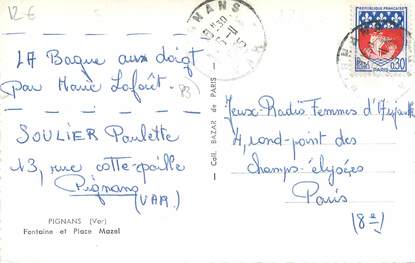 12 €
LA Bague aux doigt
(par Marie Laforêt.
SOULIER Paulette
13, rue cotte-paille
Pignans
(VAR)
PIGNANS (Var)
Fontaine et Place Mazel
Coll. BAZAR de PARIS
REPUBLIQUE FRANÇAISE
0,30
PARIS
Jeux-Radio Femmes d'Aujourd'hui
4, rond-point des
champs-élysées
Paris
(8e)